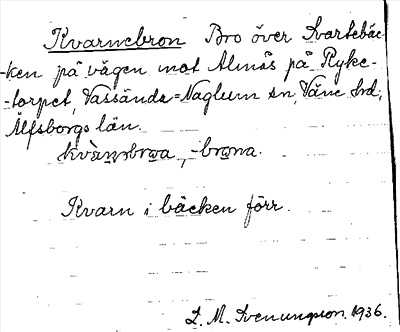 Kvarnebron Bro över Svartebäc-
-ken på vägen mot Almås på Ryke-
-torpet, Vassända=Naglum sn, Väne hd;
Älfsborgs län.
-brona.
Kvarn i bäcken förr.
L. M. Svenungson. 1936.